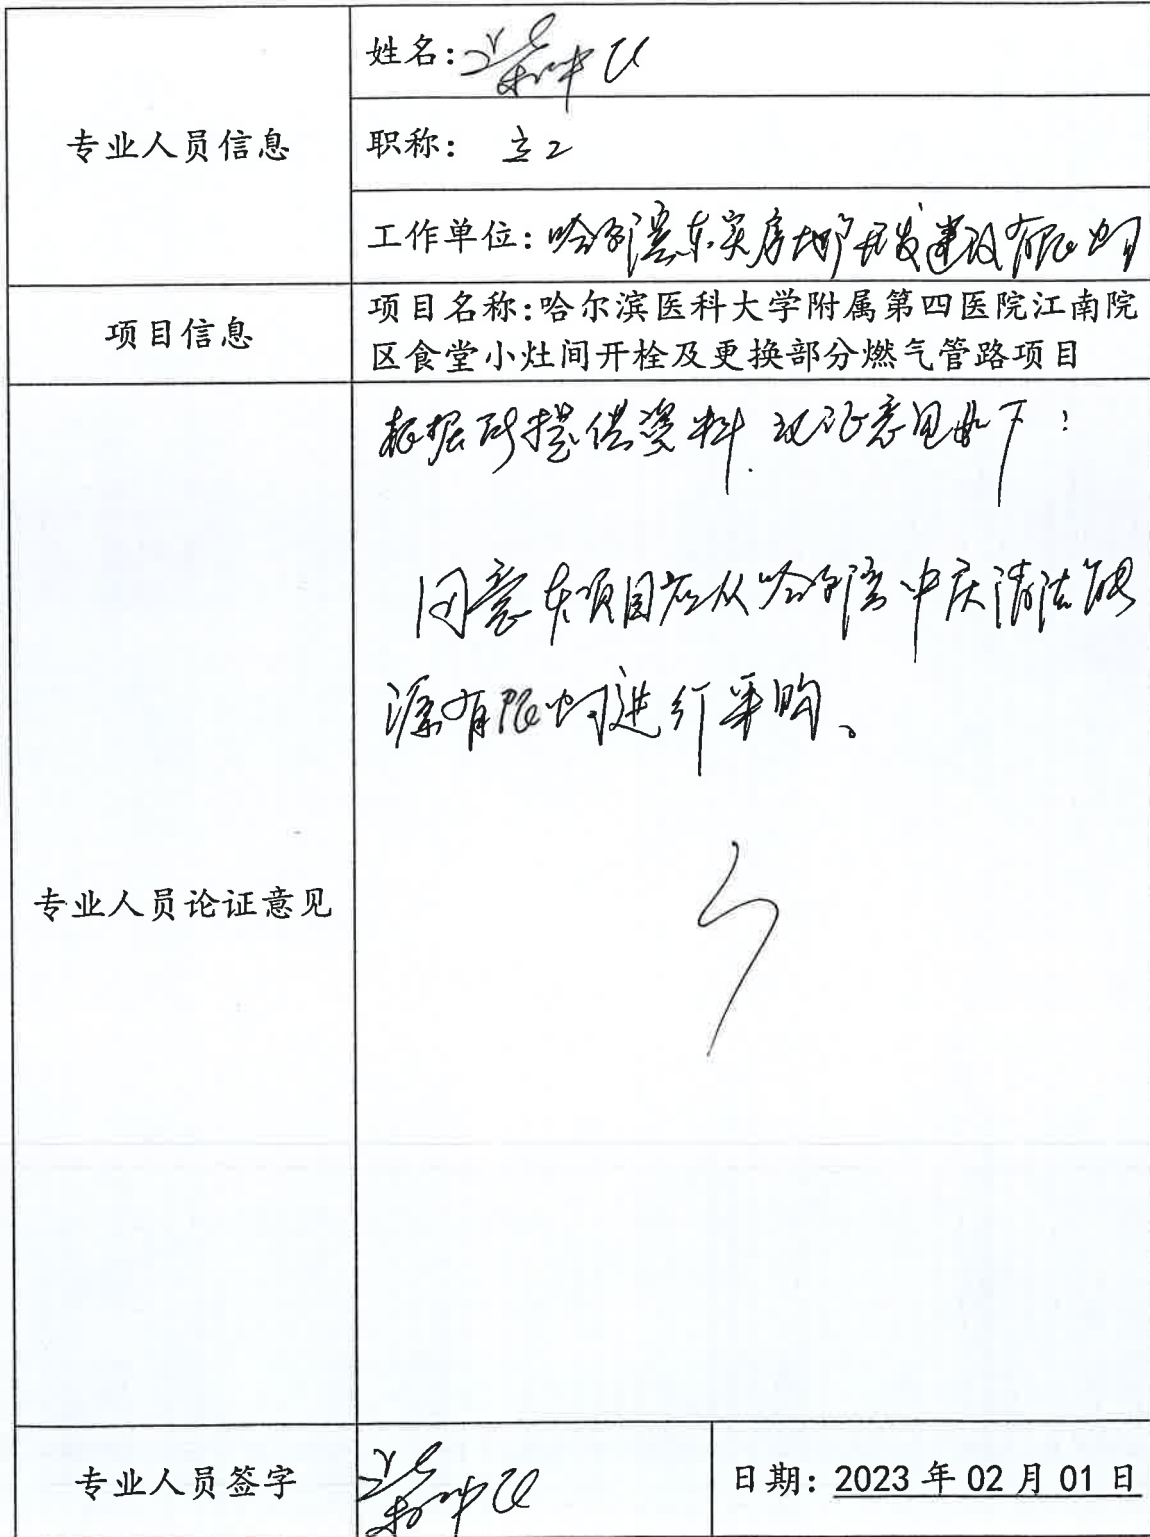 姓名:
专业人员信息
职称:
工作单位:哈尔滨东实房地产开发建设有限公司
项目信息
项目名称:哈尔滨医科大学附属第四医院江南院
区食堂小灶间开栓及更换部分燃气管路项目
根据所提供资料.论证意见如下:
同意本项目应从哈尔滨中庆清洁能
源有限公司进行采购。
专业人员论证意见
专业人员签字
日期:2023年02月01日